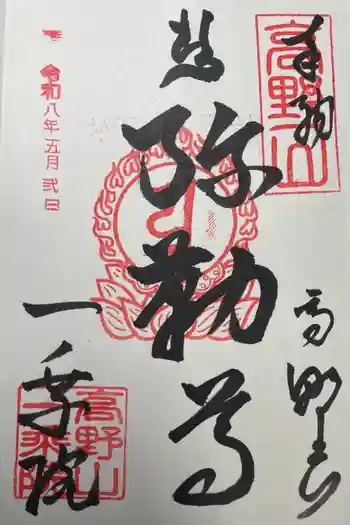 奉納
高野山
高野山
慈
弥勒尊
令和八年五月弐日
一乗院
高野山
一乗院